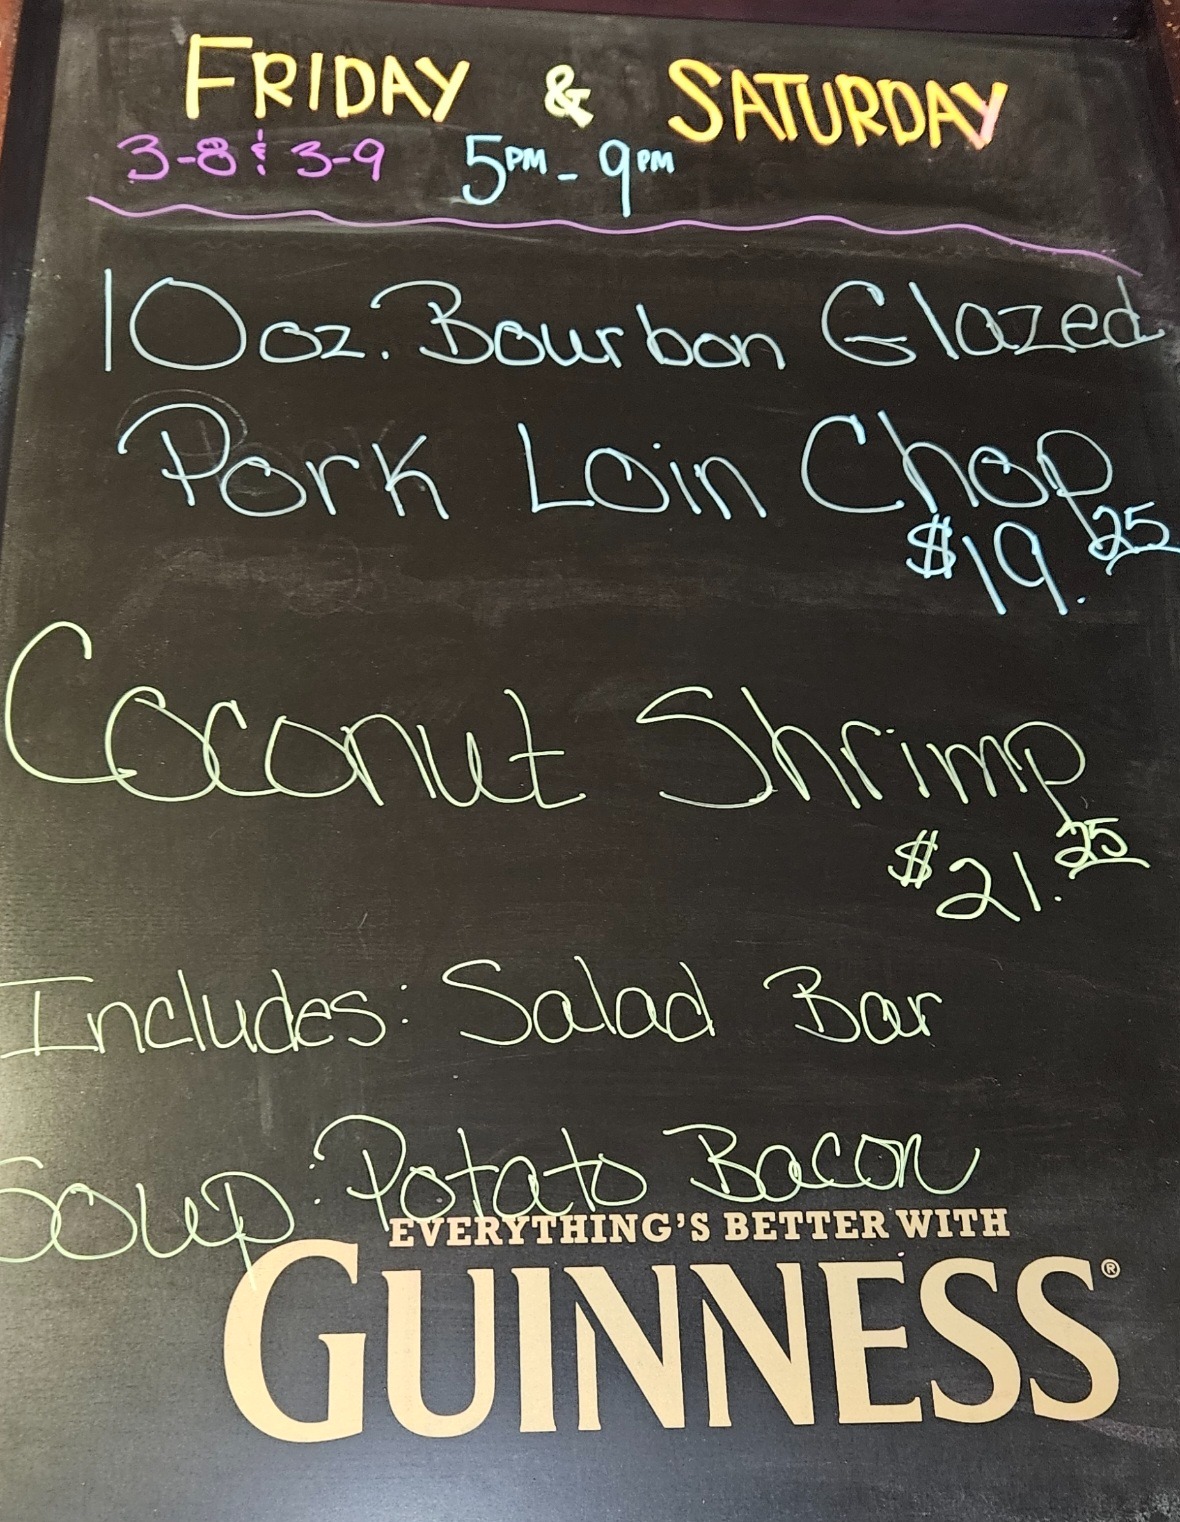 FRIDAY & SATURDAY
3-8 & 3-9 5PM - 9PM
10oz. Bourbon Glazed
Pork Loin Chop
$19.25
Coconut Shrimp
$21.25
Includes: Salad Bar
Soup: Potato Bacon
EVERYTHING'S BETTER WITH
GUINNESS®